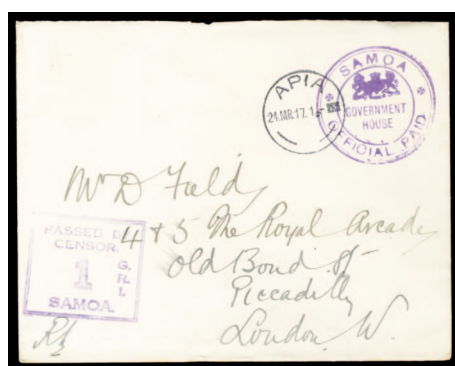 SAMOA
GOVERNMENT
HOUSE
OFFICIAL PAID
APIA
24.MR.17.1
Mr D Field
4 & 5 The Royal Arcade
Old Bond St
Piccadilly
London W.
PASSED BY
CENSOR.
1
G.
R.
I.
SAMOA.